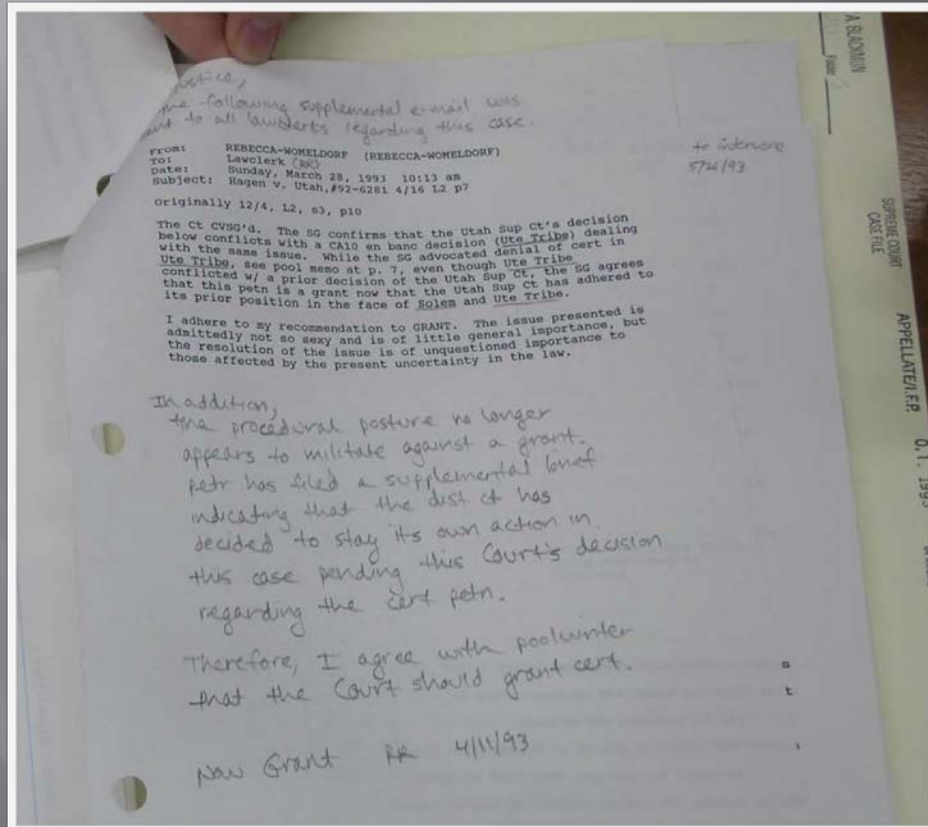 Justice,
The following supplemental e-mail was
sent to all lawclerks regarding this case.
From: REBECCA-WOMELDORF (REBECCA-WOMELDORF)
To: Lawclerk (RR)
Date: Sunday, March 28, 1993 10:13 am
Subject: Hagen v. Utah,#92-6281 4/16 L2 p7
originally 12/4, L2, s3, p10
The Ct CVSG'd. The SG confirms that the Utah Sup Ct's decision
below conflicts with a CA10 en banc decision (Ute Tribe) dealing
with the same issue. While the SG advocated denial of cert in
Ute Tribe, see pool memo at p. 7, even though Ute Tribe
conflicted w/ a prior decision of the Utah Sup Ct, the SG agrees
that this petn is a grant now that the Utah Sup Ct has adhered to
its prior position in the face of Solem and Ute Tribe.
I adhere to my recommendation to GRANT. The issue presented is
admittedly not so sexy and is of little general importance, but
the resolution of the issue is of unquestioned importance to
those affected by the present uncertainty in the law.
In addition,
the procedural posture no longer
appears to militate against a grant.
petr has filed a supplemental brief
indicating that the dist ct has
decided to stay its own action in
this case pending this Court's decision
regarding the cert petn.
Therefore, I agree with poolwriter
that the Court should grant cert.
Now Grant RR 4/11/93
to intervene
5/26/93
s
t
A BLACKMUN
Folder 3
SUPREME COURT
CASE FILE
APPELLATE/I.F.P.
O.T. 1993